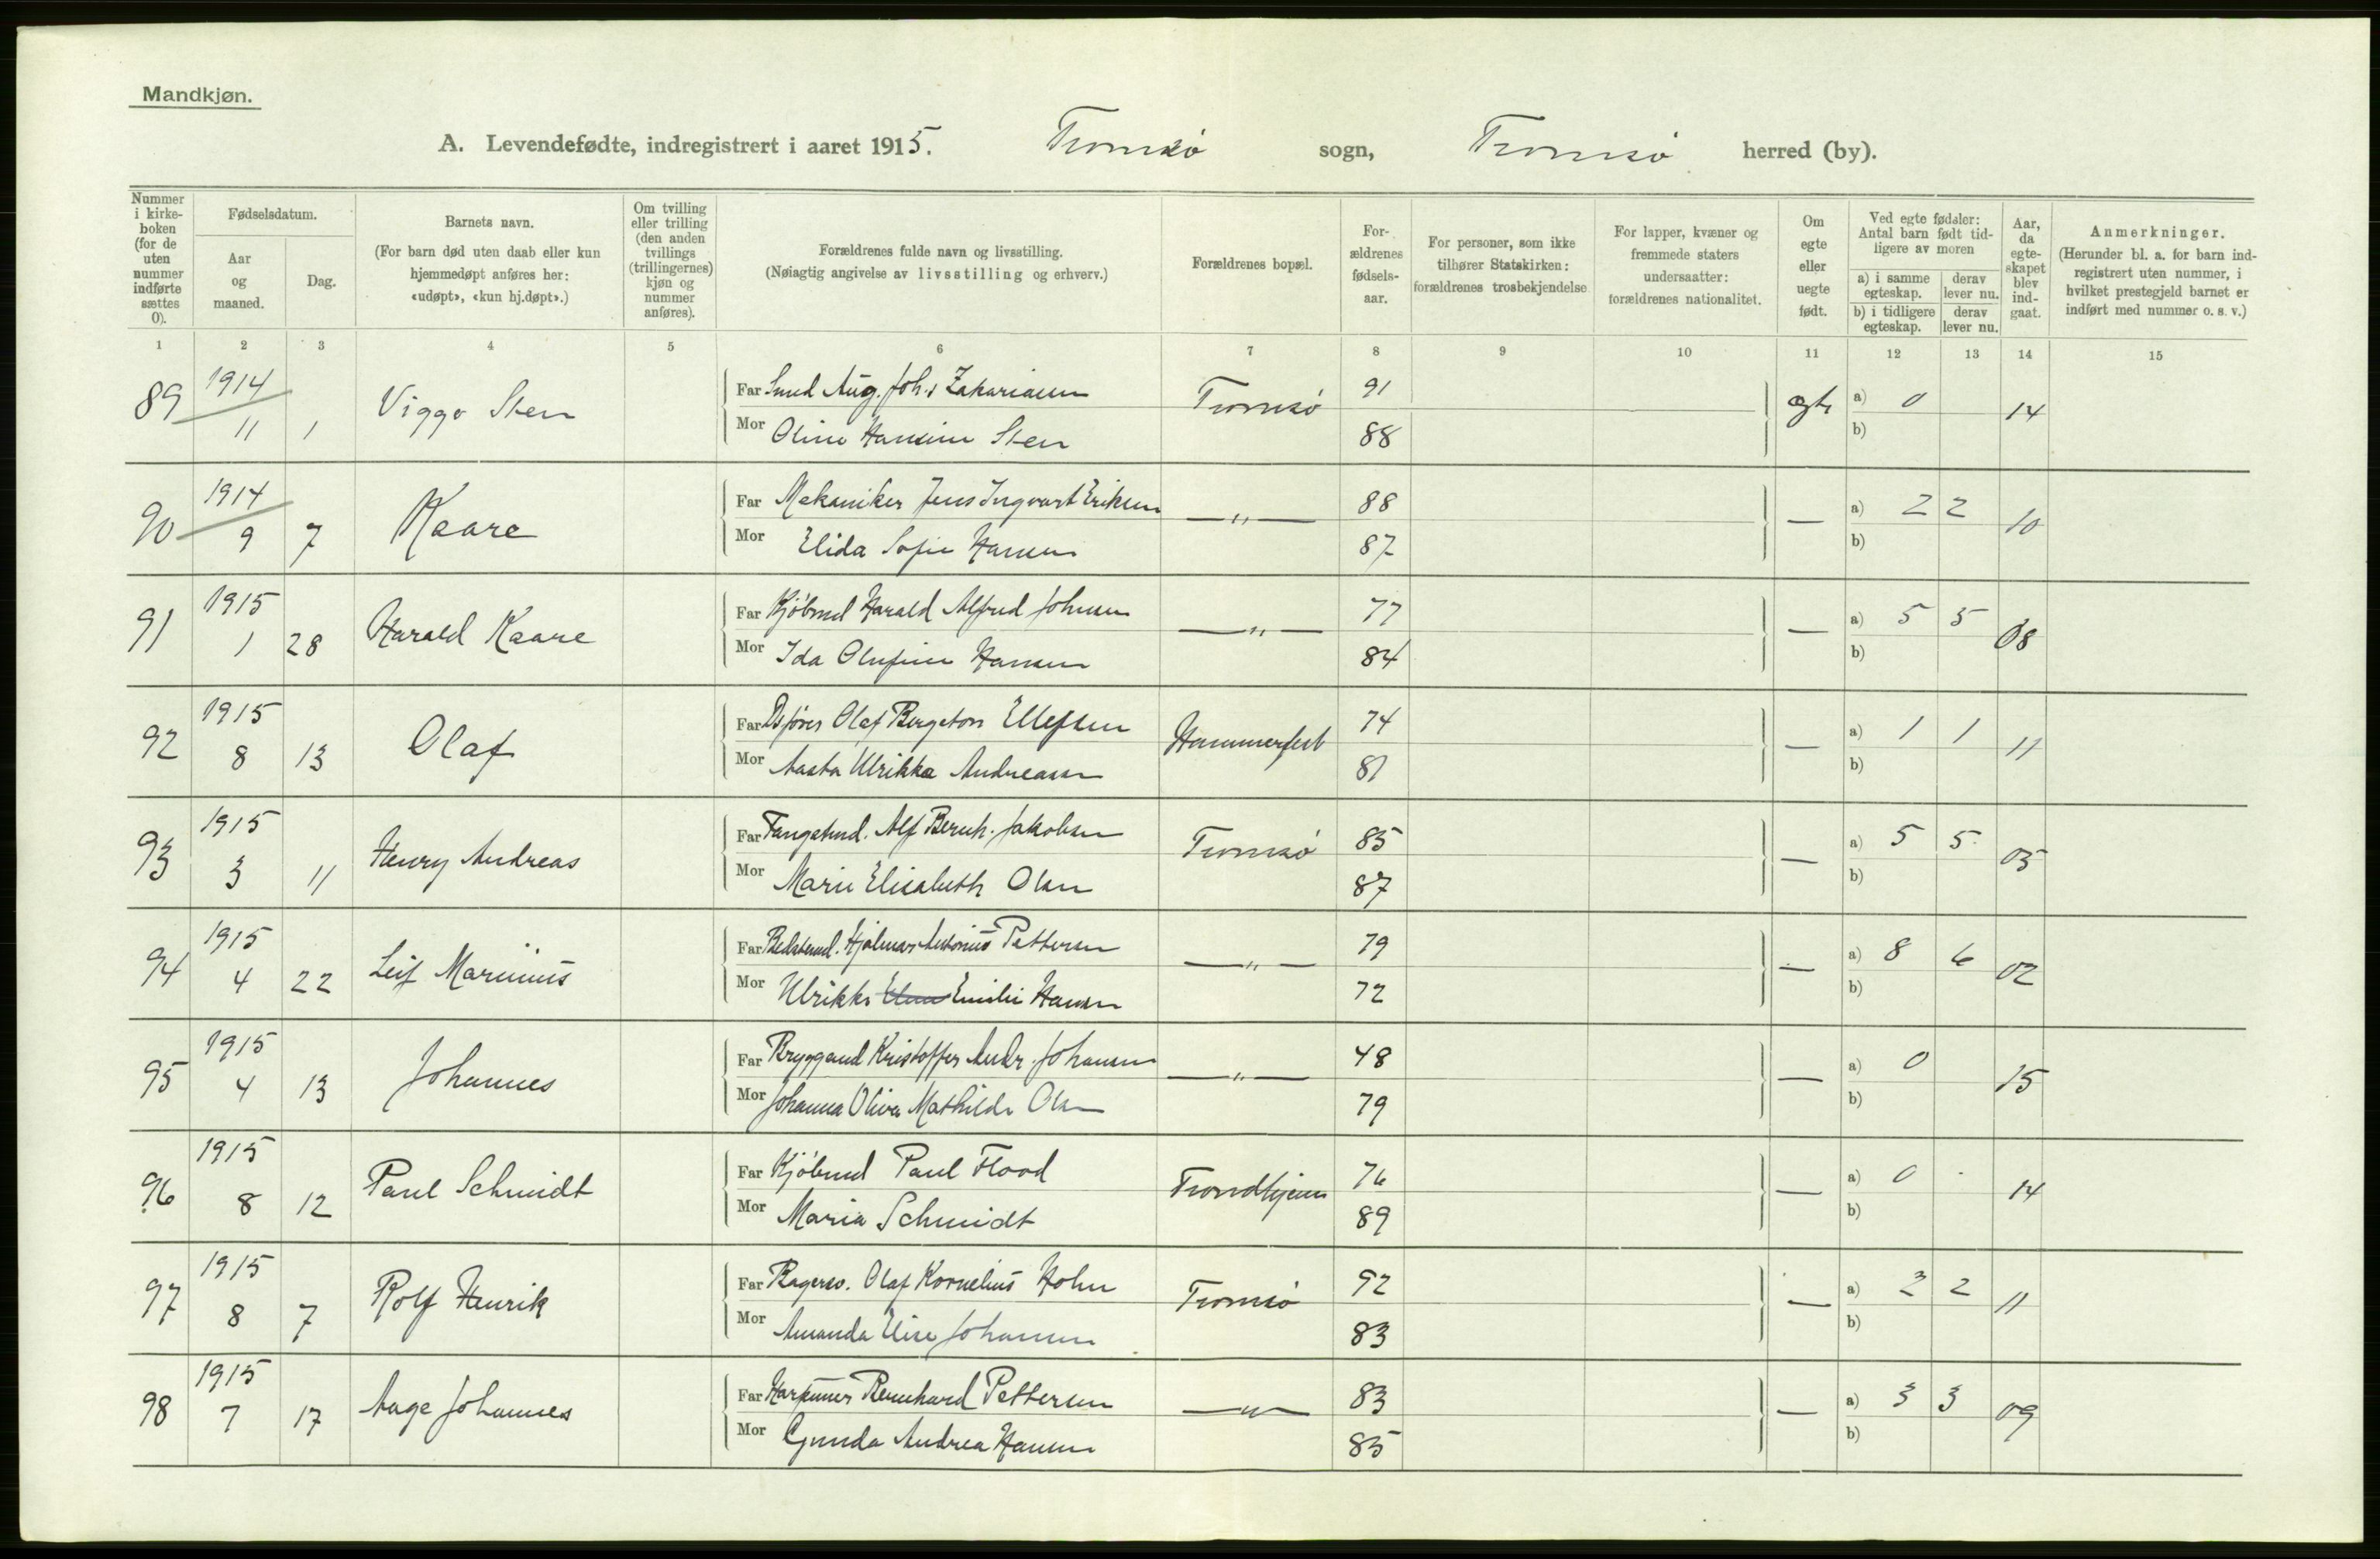 Mandkjøn.
A. Levendefødte, indregistrert i aaret 1915. Tromsø sogn, Tromsø herred (by).
Nummer i kirke-boken (for de uten nummer indførte sættes 0).
Fødselsdatum.
Aar og maaned.
Dag.
Barnets navn.
(For barn død uten daab eller kun hjemmedøpt anføres her: «udøpt», «kun hj.døpt».)
Om tvilling eller trilling (den anden tvillings (trillingernes) kjøn og nummer anføres).
Forældrenes fulde navn og livsstilling.
(Nøiagtig angivelse av livsstilling og erhverv.)
Forældrenes bopæl.
For-ældrenes fødsels-aar.
For personer, som ikke tilhører Statskirken: forældrenes trosbekjendelse
For lapper, kvæner og fremmede staters undersaatter: forældrenes nationalitet.
Om egte eller uegte født.
Ved egte fødsler: Antal barn født tid-ligere av moren
a) i samme egteskap. derav lever nu.
b) i tidligere egteskap. derav lever nu.
Aar, da egte-skapet blev ind-gaat.
Anmerkninger.
(Herunder bl. a. for barn ind-registrert uten nummer, i hvilket prestegjeld barnet er indført med nummer o. s. v.)
1 2 3 4 5 6 7 8 9 10 11 12 13 14 15
89 1914 11 1 Viggo Sten Far Smed Aug. Joh.s Zakariassen Tromsø 91 egte a) 0 14
Mor Oline Hansine Sten 88 b)
90 1914 9 7 Kaare Far Mekaniker Jens Ingvart Eriksen —„— 88 — a) 2 2 10
Mor Elida Sofie Hansen 87 b)
91 1915 1 28 Harald Kaare Far Kjøbmd Harald Alfred Johnsen —„— 77 — a) 5 5 08
Mor Ida Olufine Hansen 84 b)
92 1915 8 13 Olaf Far Olaf Bergeton Ellefsen Hammerfest 74 — a) 1 1 11
Mor Aasta Ulrikka Andreassen 81 b)
93 1915 3 11 Henry Andreas Far Fangstmd. Alf Bernh. Jakobsen Tromsø 85 — a) 5 5 05
Mor Marie Elisabeth Olsen 87 b)
94 1915 4 22 Leif Marinius Far Hjalmar Antonius Pettersen —„— 79 — a) 8 6 02
Mor Ulrikke Emilie Hansen 72 b)
95 1915 4 13 Johannes Far Bryggemd Kristoffer Andr. Johansen —„— 48 — a) 0 15
Mor Johanna Oliva Mathilde Olsen 79 b)
96 1915 8 12 Paul Schmidt Far Kjøbmd Paul Flood Trondhjem 76 — a) 0 14
Mor Maria Schmidt 89 b)
97 1915 8 7 Rolf Henrik Far Bagersv. Olaf Kornelius Holm Tromsø 92 — a) 2 2 11
Mor Amanda Elise Johansen 83 b)
98 1915 7 17 Aage Johannes Far Harpuner Bernhard Pettersen —„— 83 — a) 3 3 09
Mor Gunda Andrea Hansen 85 b)